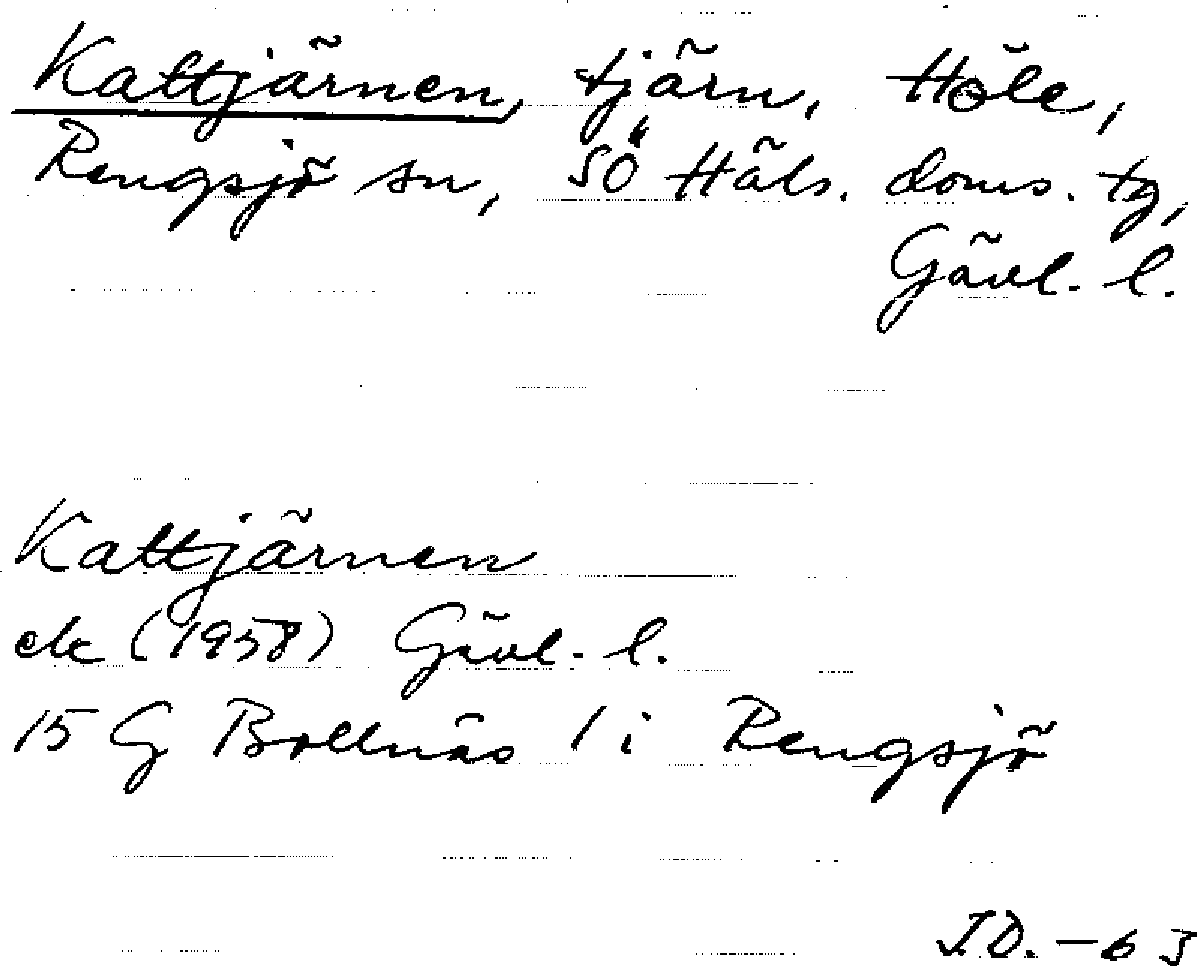 Kattjärnen, tjärn, Höle,
Rengsjö sn, SÖ Häls. doms. tg,
Gävl. l.
Kattjärnen
ek (1958) Gävl. l.
15 G Bollnäs 1 i Rengsjö
J.D. -63